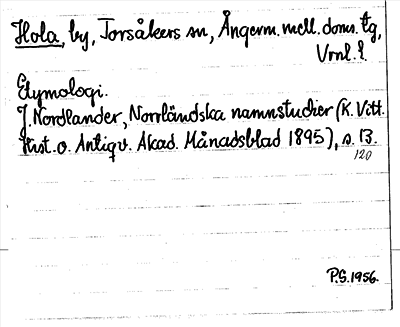 Hola, by, Torsåkers sn, Ångerm. mell. doms. tg,
Vrnl. l.
Etymologi.
J. Nordlander, Norrländska namnstudier (K. Vitt.
Hist. o. Antiqv. Akad. Månadsblad 1895), s. 13.
120
P.S. 1956.